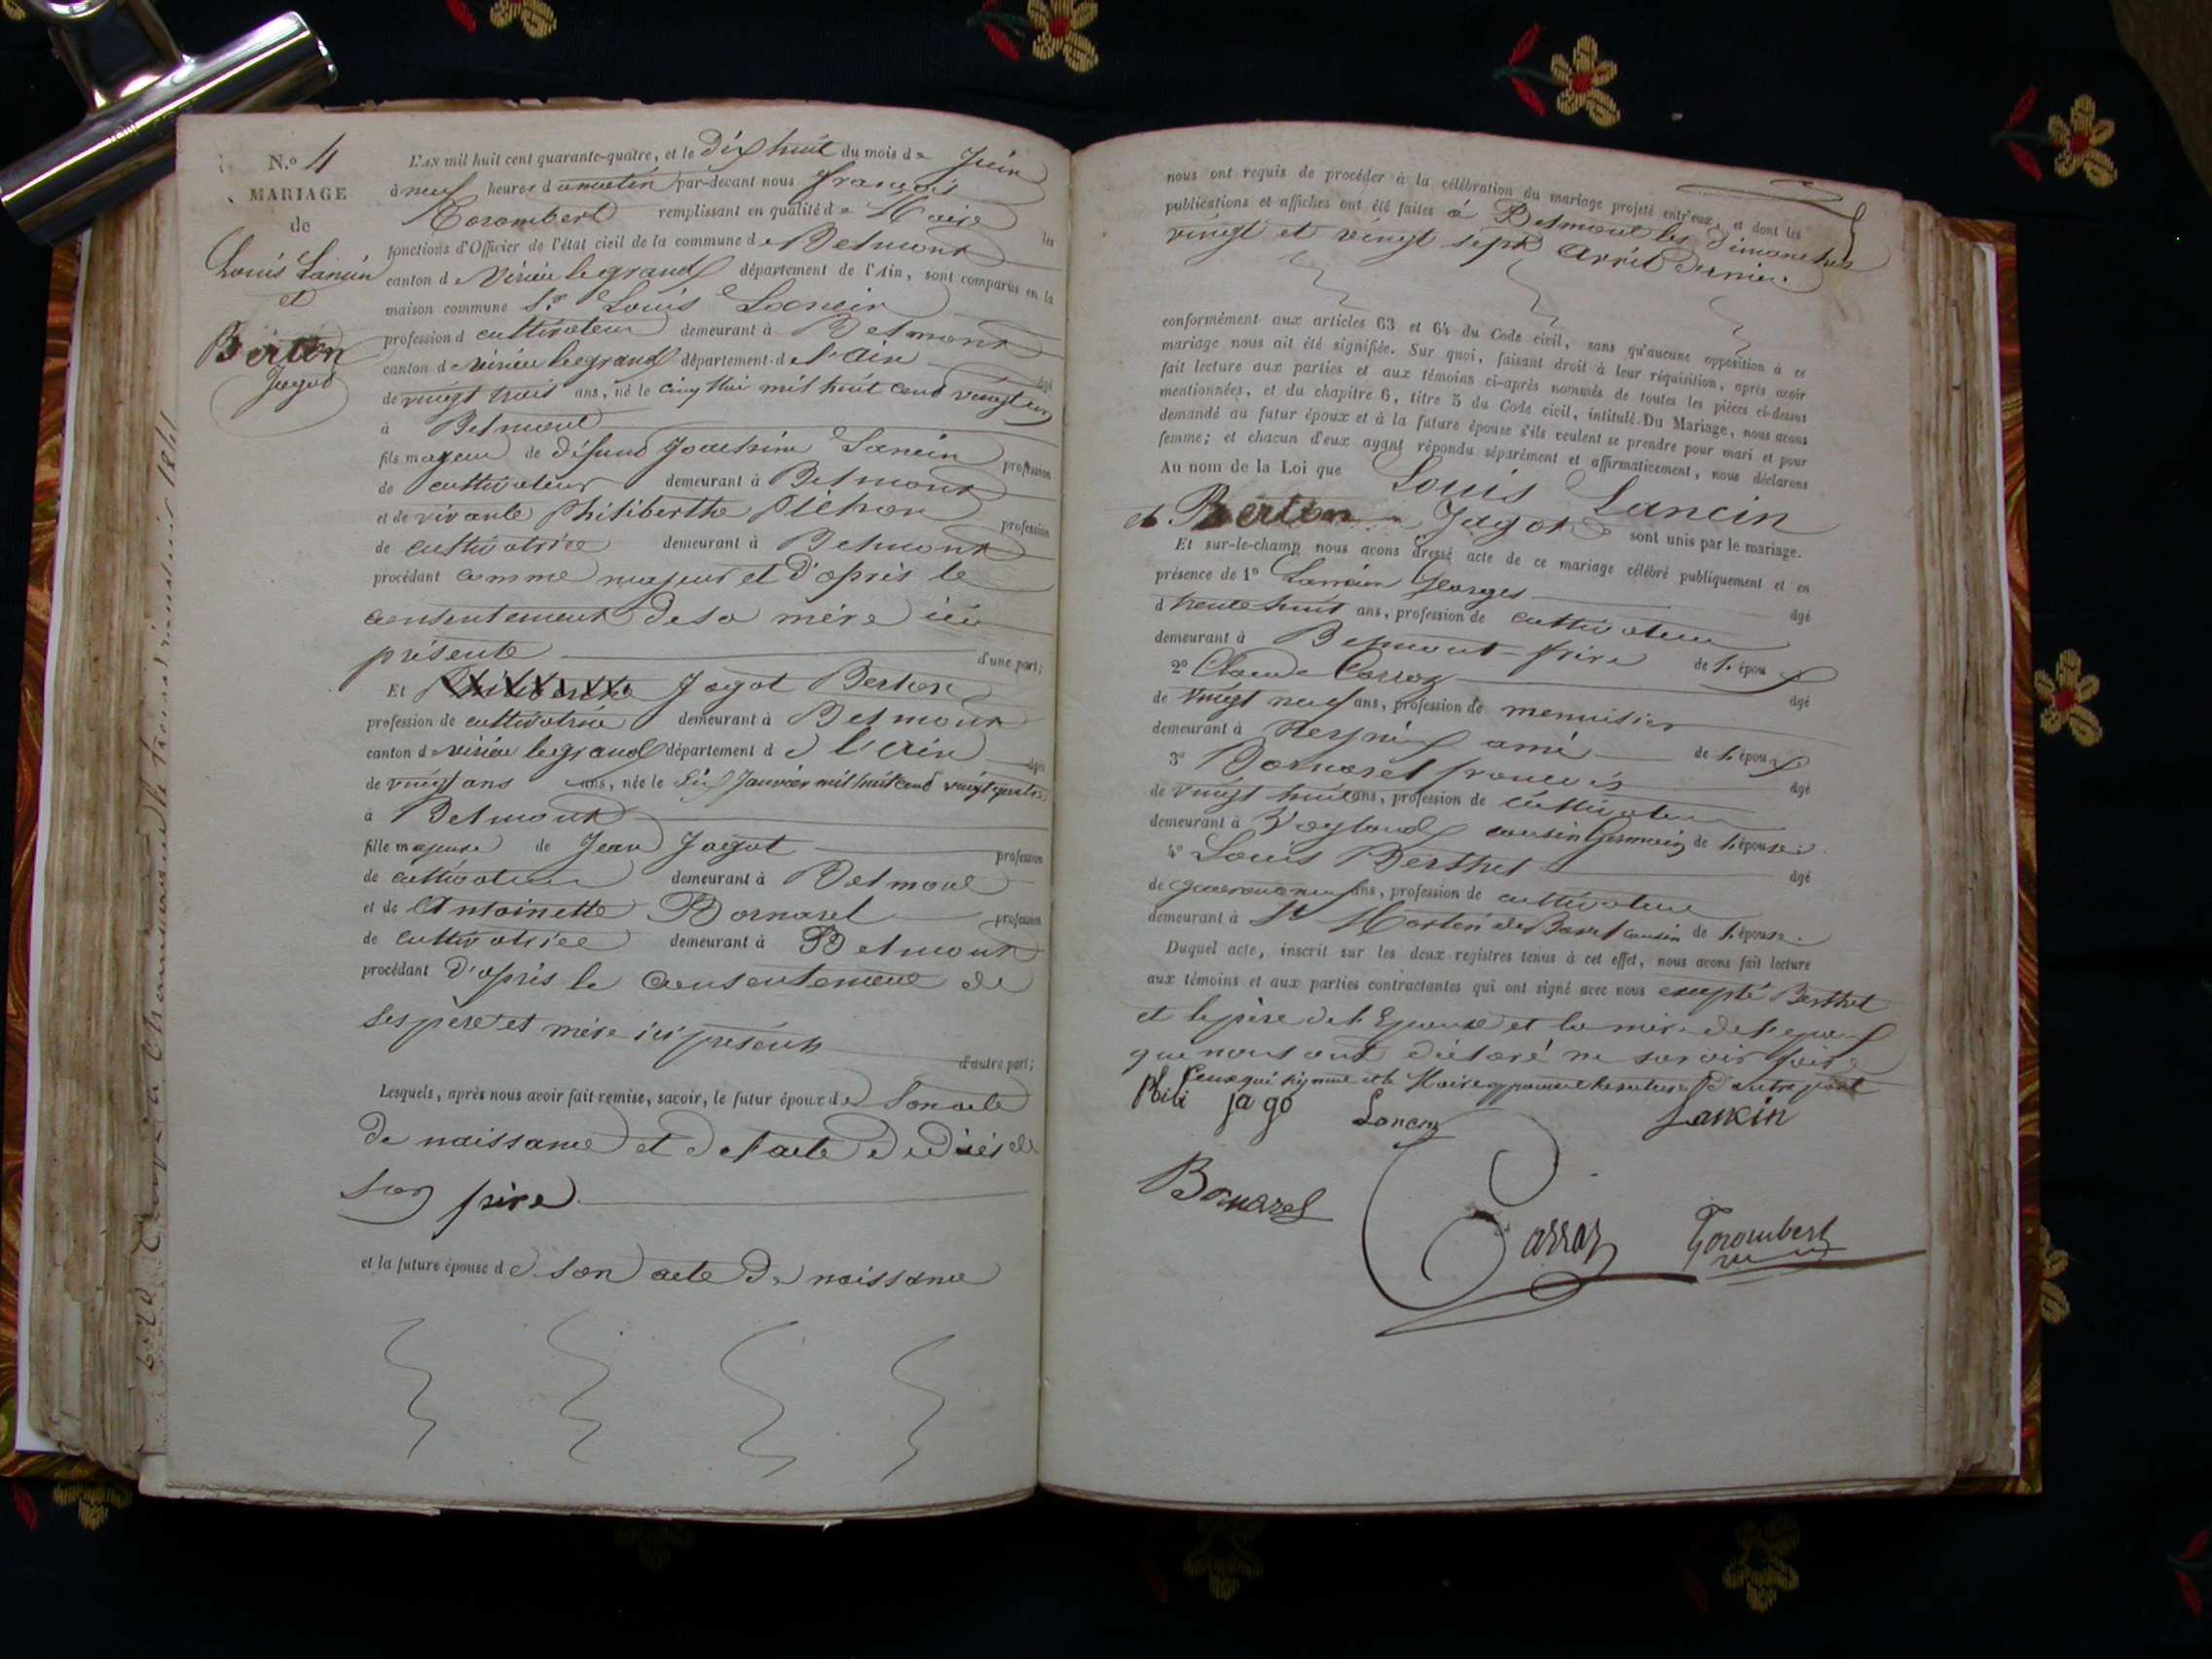 N.o 4
MARIAGE
de
Louis Lancin
et
Berton
Jagod
L'AN mil huit cent quarante-quatre, et le Dix huit du mois de Juin
à neuf heures du matin par-devant nous françois
Torombert remplissant en qualité de Maire les
fonctions d'Officier de l'état civil de la commune de Belmont
canton de Virieu le grand département de l'Ain, sont comparus en la
maison commune Sr Louis Lancin
profession d cultivateur demeurant à Belmont
canton de virieu le grand département de l'Ain âgé
de vingt trois ans, né le cinq Mai mil huit cent vingt un
à Belmont
fils majeur de défunt Joachim Lancin profession
de cultivateur demeurant à Belmont
et de vivante Philiberthe profession
de cultivatrice demeurant à Belmont
procédant comme majeur et d'après le
consentement de sa mère ici
présente d'une part;
Et Jagot Berton
profession de cultivatrice demeurant à Belmont
canton de virieu le grand département d e l'Ain âgée
de vingt ans ans, née le Janvier mil huit cent vingt quatre
à Belmont
fille majeure de Jean Jagot profession
de cultivateur demeurant à Belmont
et de Antoinette Bornarel profession
de cultivatrice demeurant à Belmont
procédant D'après le consentement de
ses père et mère ici présents
d'autre part;
Lesquels, après nous avoir fait remise, savoir, le futur époux de Son acte
de naissance et de l'acte de décès de
son père
et la future épouse d e son acte de naissance
nous ont requis de procéder à la célébration du mariage projeté entr'eux, et dont les
publications et affiches ont été faites à Belmont les Dimanches
vingt et vingt sept Avril Dernier
conformément aux articles 63 et 64 du Code civil, sans qu'aucune opposition à ce
mariage nous ait été signifiée. Sur quoi, faisant droit à leur réquisition, après avoir
fait lecture aux parties et aux témoins ci-après nommés de toutes les pièces ci-dessus
mentionnées, et du chapitre 6, titre 5 du Code civil, intitulé Du Mariage, nous avons
demandé au futur époux et à la future épouse s'ils veulent se prendre pour mari et pour
femme; et chacun d'eux ayant répondu séparément et affirmativement, nous déclarons
Au nom de la Loi que Louis Lancin
et Berton Jagot sont unis par le mariage.
Et sur-le-champ nous avons dressé acte de ce mariage célébré publiquement et en
présence de 1o Lancin Georges âgé
d trente huit ans, profession de cultivateur
demeurant à Belmont frère de l'époux
2o Claude Carraz âgé
de vingt neuf ans, profession de menuisier
demeurant à ami de l'époux
3o Bornarel françois âgé
de vingt huit ans, profession de cultivateur
demeurant à Vogland cousin Germain de l'épouse
4o Louis Berthet âgé
de ans, profession de cultivateur
demeurant à St Martin de Bavel cousin de l'épouse
Duquel acte, inscrit sur les deux registres tenus à cet effet, nous avons fait lecture
aux témoins et aux parties contractantes qui ont signé avec nous excepté Berthet
et le père de l'Epouse et la mère de l'epoux
que nous ont déclaré ne savoir faire
Ceux qui signent et le Maire approuvent la rature d'autre part
Phili jago Lancin Lancin
Bornarel
Carraz Torombert